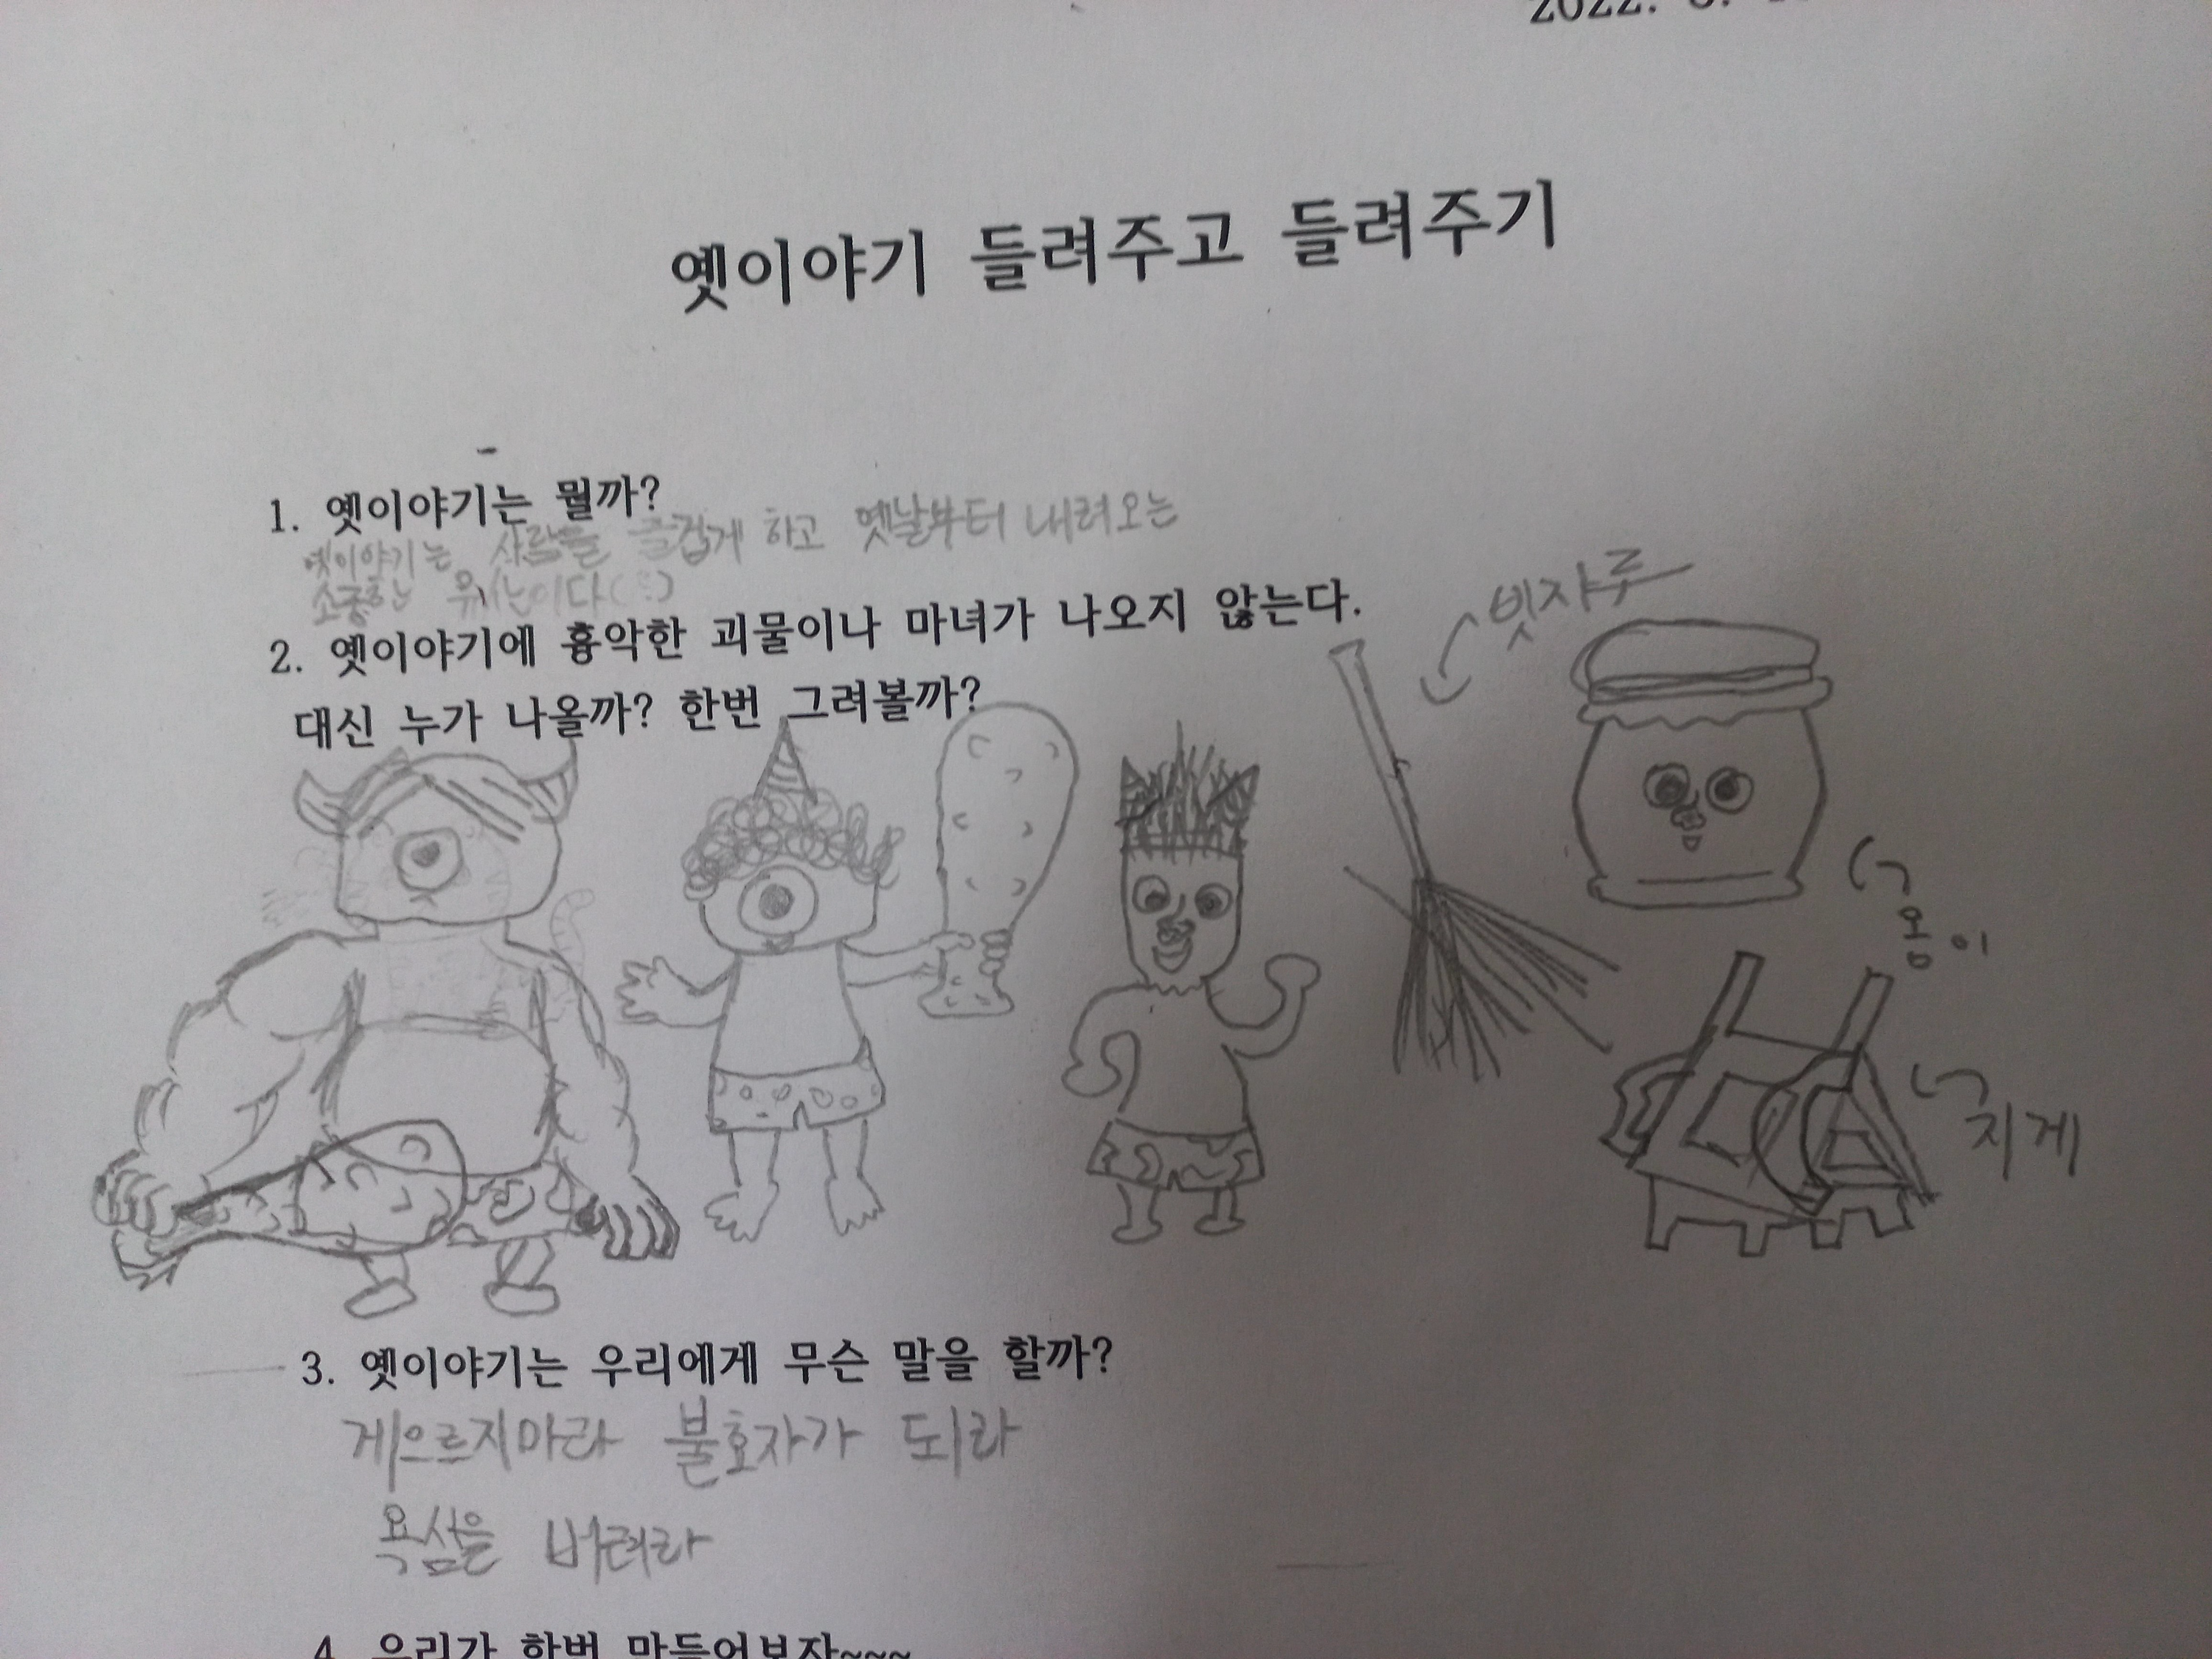 2022.
옛이야기 들려주고 들려주기
1. 옛이야기는 뭘까?
옛이야기는 사람들 즐겁게 하고 옛날부터 내려오는
소중한 유산이다
2. 옛이야기에 흉악한 괴물이나 마녀가 나오지 않는다.
대신 누가 나올까? 한번 그려볼까?
빗자루
옹이
지게
3. 옛이야기는 우리에게 무슨 말을 할까?
게으르지마라 불효자가 되라
욕심을 버려라
4. 우리가 한번 만들어보자~~~